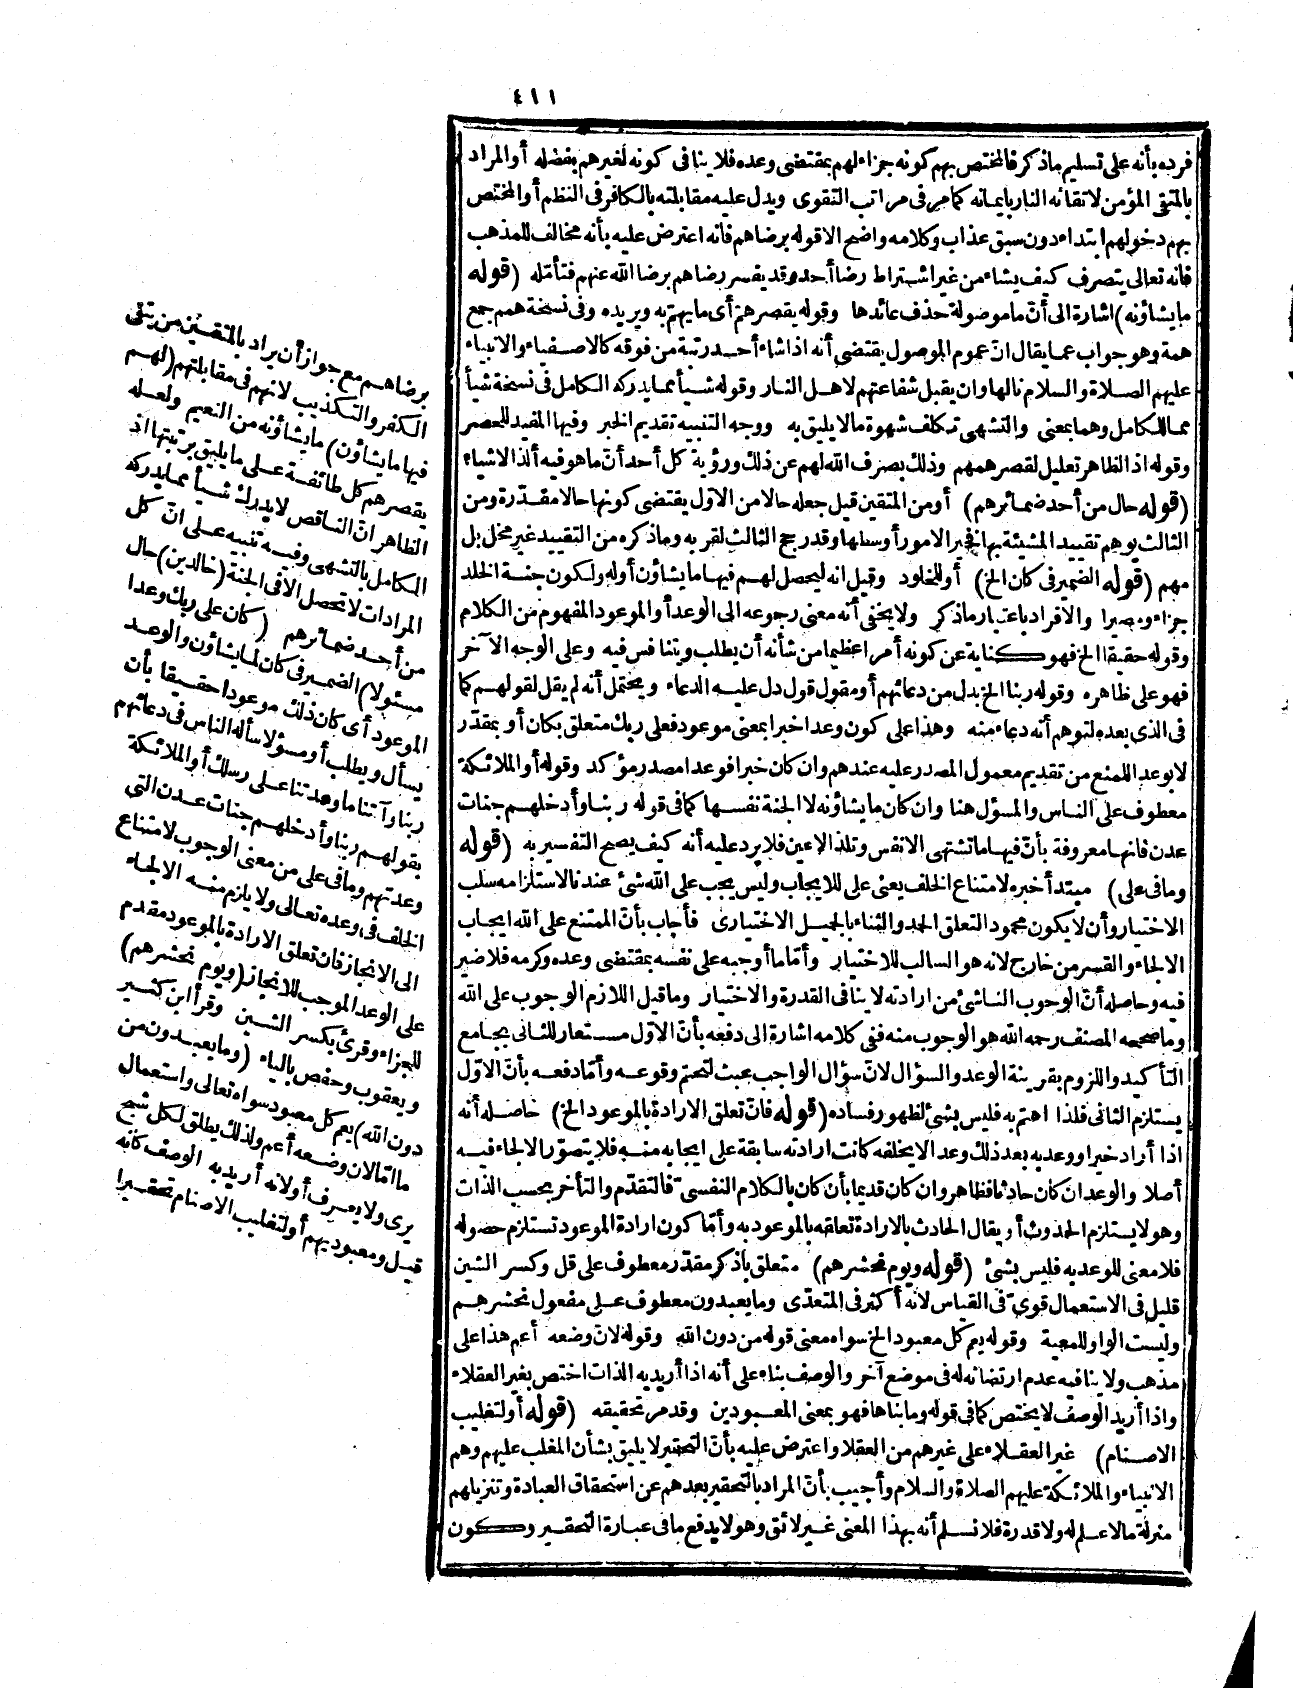 ٤١١
فرده بأنه على تسليم ماذكر فالمختص بهم كونه جزاء لهم بمقتضى وعده فلا ينافى كونه لغيرهم بفضله أو المراد
بالمتقى المؤمن لاتقائه النار بايمانه كمامر فى مراتب التقوى ويدل عليه مقابلته بالكافر فى النظم أو المختص
بهم دخولهم ابتداء دون سبق عذاب وكلامه واضح الا قوله برضاهم فانه اعترض عليه بأنه مخالف للمذهب
فانه تعالى يتصرف كيف يشاء من غير اشتراط رضا أحد وقد يفسر رضاهم برضا الله عنهم فتأمّله (قوله
مايشاؤنه) اشارة الى أنّ ما موصولة حذف عائدها وقوله يقصر همّ أى مايهتم به ويريده وفى نسخة همم جمع
همة وهو جواب عما يقال انّ عموم الموصول يقتضى أنه اذا شاء أحد رتبة من فوقه كالاصفياء والانبياء
عليهم الصلاة والسلام نالها وان يقبل شفاعتهم لاهل النار وقوله شيأ مما يدركه الكامل فى نسخة شيأ
مما للكامل وهما بمعنى والتشهى تكلف شهوة مالا يليق به ووجه التنبيه تقديم الخبر وفيها المفيد للحصر
وقوله اذ الظاهر تعليل لقصر هممهم وذلك بصرف الله لهم عن ذلك ورؤية كل أحد أنّ ما هو فيه ألذ الاشياء
(قوله حال من أحد ضمائرهم) أو من المتقين قيل جعله حالا من الاول يقتضى كونها حالا مقدّرة ومن
الثالث يوهم تقييد المشيئة بها فخير الامور أوسطها وقد رجح الثالث لقربه وماذكره من التقييد غير مخل بل
مهم (قوله الضمير فى كان الخ) أو للخلود وقيل انه ليحصل لهم فيها مايشاؤن أوله ولكون جنة الخلد
جزاء ومصيرا والافراد باعتبار ماذكر ولا يخفى أنه معنى رجوعه الى الوعد أو الموعود المفهوم من الكلام
وقوله حقيقا الخ فهو كناية عن كونه أمرا عظيما من شأنه أن يطلب ويتنافس فيه وعلى الوجه الآخر
فهو على ظاهره وقوله ربنا الخ بدل من دعائهم أو مقول قول دل عليه الدعاء ويحتمل أنه لم يقل لقولهم كما
فى الذى بعده لتوهم أنه دعاء منه وهذا على كون وعدا خبرا بمعنى موعود فعلى ربك متعلق بكان أو بمقدّر
لا بوعد اللمنع من تقديم معمول المصدر عليه عندهم وان كان خبرا فوعدا مصدر مؤكد وقوله أو الملائكة
معطوف على الناس والمسؤل هنا وان كان مايشاؤنه لا الجنة نفسها كما فى قوله ربنا وأدخلهم جنات
عدن فانها معروفة بأنّ فيها ماتشتهى الانفس وتلذ الاعين فلا يرد عليه أنه كيف يصح التفسير به (قوله
وما فى على) مبتدأ خبره لامتناع الخلف يعنى على للايجاب وليس يجب على الله شئ عندنا لاستلزامه سلب
الاختيار وأن لا يكون محمود التعلق الحمد والثناء بالجميل الاختيارى فأجاب بأنّ الممتنع على الله ايجاب
الالجاء والقسر من خارج لانه هو السالب للاختيار وأمّا ما أوجبه على نفسه بمقتضى وعده وكرمه فلا ضير
فيه وحاصله أنّ الوجوب الناشئ من ارادته لا ينافى القدرة والاختيار وماقيل اللازم الوجوب على الله
وما صححه المصنف رحمه الله هو الوجوب منه ففى كلامه اشارة الى دفعه بأنّ الاول مستعار للثانى بجامع
التأكيد واللزوم بقرينة الوعد والسؤال لانّ سؤال الواجب عبث لتحتم وقوعه وأمّا دفعه بأنّ الاوّل
يستلزم الثانى فلذا اهتم به فليس بشئ لظهور فساده (قوله فانّ تعلق الارادة بالموعود الخ) حاصله أنه
اذا أراد خيرا ووعد به بعد ذلك وعدا لا يخلفه كانت ارادته سابقة على ايجابه منه فلا يتصوّر الالجاء فيه
أصلا والوعد ان كان حادثا فظاهر وان كان قديما بأن كان بالكلام النفسىّ فالتقدّم والتأخر بحسب الذات
وهو لا يستلزم الحدوث أو يقال الحادث بالارادة تعلقه بالموعود به وأمّا كون ارادة الموعود تستلزم حصوله
فلا معنى للوعد به فليس بشئ (قوله ويوم نحشرهم) متعلق باذكر مقدّر معطوف على قل وكسر الشين
قليل فى الاستعمال قوىّ فى القياس لانه أكثر فى المتعدّى وما يعبدون معطوف على مفعول نحشرهم
وليست الواو للمعية وقوله يعم كل معبود الخ سواه معنى قوله من دون الله وقوله لانّ وضعه أعم هذا على
مذهب ولا ينافيه عدم ارتضائه له فى موضع آخر والوصف بناء على أنه اذا أريد به الذات اختص بغير العقلاء
واذا أريد الوصف لا يختص كما فى قوله وما بناها فهو بمعنى المعبودين وقد مر تحقيقه (قوله أو لتغليب
الاصنام) غير العقلاء على غيرهم من العقلا واعترض عليه بأنّ التحقير لا يليق بشأن المغلب عليهم وهم
الانبياء والملائكة عليهم الصلاة والسلام وأجيب بأنّ المراد بالتحقير بعدهم عن استحقاق العبادة وتنزيلهم
منزلة مالا علم له ولا قدرة فلا نسلم أنه بهذا المعنى غير لائق وهو لا يدفع ما فى عبارة التحقير وكون
برضاهم مع جواز أن يراد بالمتقين من يتقى
الكفر والتكذيب لانهم فى مقابلتهم (لهم
فيها مايشاؤن) مايشاؤنه من النعيم ولعله
يقصر هم كل طائفة على مايليق برتبتها اذ
الظاهر انّ الناقص لا يدرك شيأ مما يدركه
الكامل بالتشهى وفيه تنبيه على انّ كل
المرادات لا تحصل الا فى الجنة (خالدين) حال
من أحد ضمائرهم (كان على ربك وعدا
مسئولا) الضمير فى كان لما يشاؤن والوعد
الموعود أى كان ذلك موعودا حقيقا بأن
يسأل ويطلب أو مسؤلا سأله الناس فى دعائهم
ربنا وآتنا ماوعدتنا على رسلك أو الملائكة
بقولهم ربنا وأدخلهم جنات عدن التى
وعدتهم وما فى على من معنى الوجوب لامتناع
الخلف فى وعده تعالى ولا يلزم منه الالجاء
الى الانجاز فان تعلق الارادة بالموعود مقدم
على الوعد الموجب للانجاز (ويوم نحشرهم)
للجزاء وقرئ بكسر الشين وقرأ ابن كثير
ويعقوب وحفص بالياء (وما يعبدون من
دون الله) يعم كل معبود سواه تعالى واستعمال
ما امّا لان وضعه أعم ولذلك يطلق لكل شبح
يرى ولا يعرف أو لانه أريد به الوصف كأنه
قيل ومعبوديهم أو لتغليب الاصنام تحقيرا